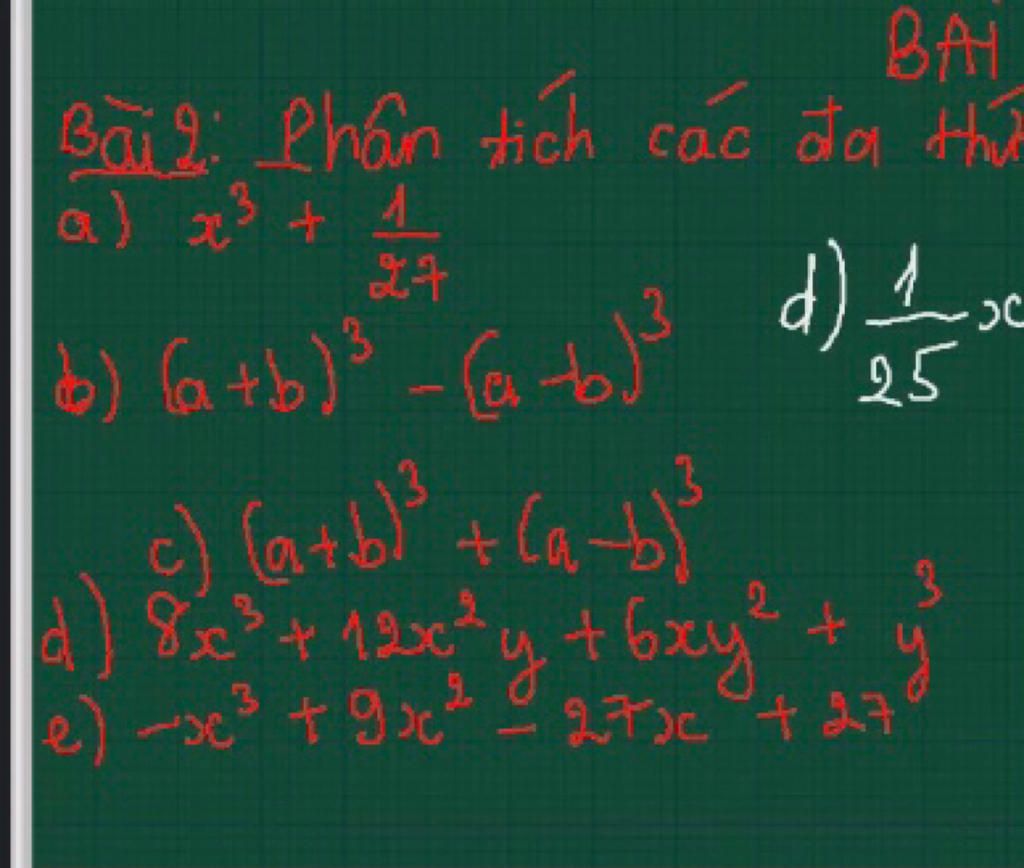 BÀI
Bài 2: Phân tích các đa
a) x³ + 1/27
d) 1/25 x
b) (a+b)³ - (a-b)³
c) (a+b)³ + (a-b)³
d) 8x³ + 12x²y + 6xy² + y³
e) -x³ + 9x² - 27x + 27